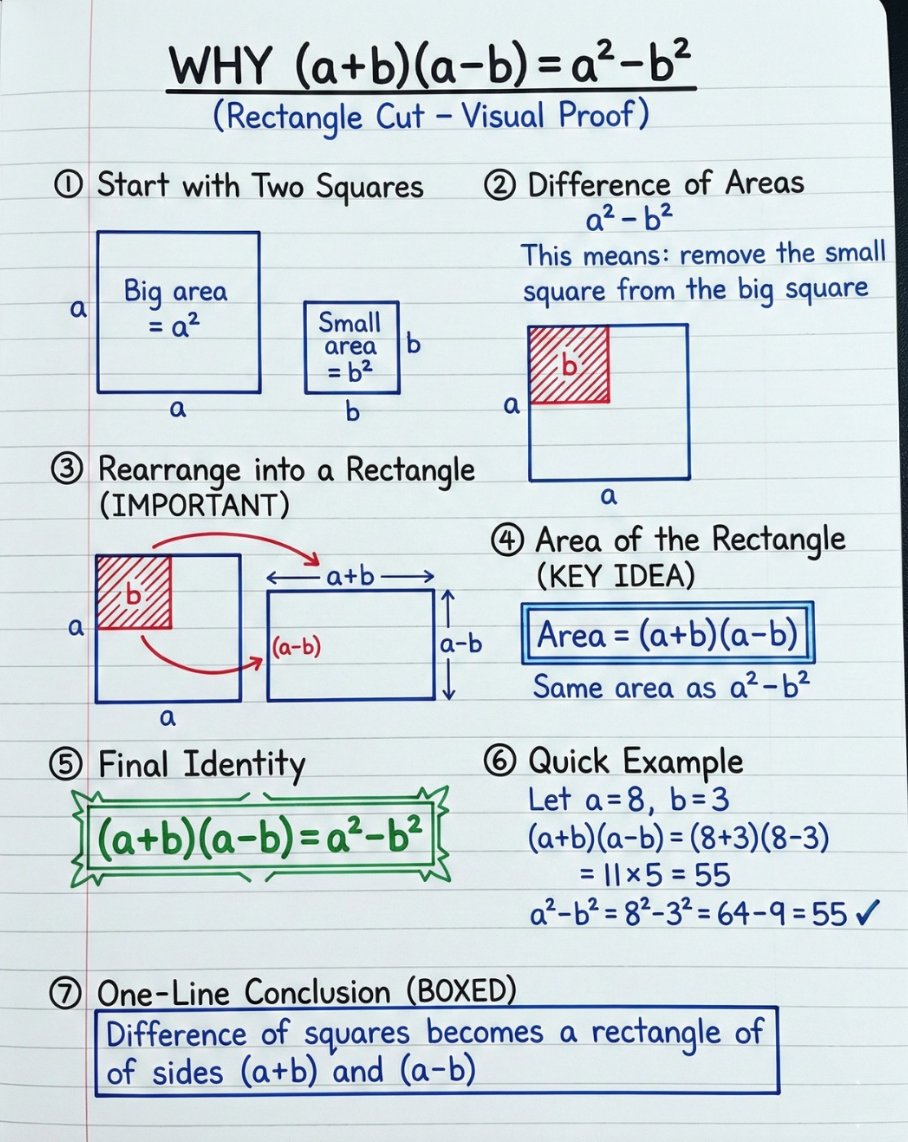 WHY (a+b)(a-b) = a²-b²
(Rectangle Cut – Visual Proof)
① Start with Two Squares
Big area
= a²
a
a
Small
area
= b²
b
b
② Difference of Areas
a² - b²
This means: remove the small
square from the big square
b
a
a
③ Rearrange into a Rectangle
(IMPORTANT)
b
a
a
a+b
(a-b)
a-b
④ Area of the Rectangle
(KEY IDEA)
Area = (a+b)(a-b)
Same area as a²-b²
⑤ Final Identity
(a+b)(a-b) = a²-b²
⑥ Quick Example
Let a=8, b=3
(a+b)(a-b) = (8+3)(8-3)
= 11×5 = 55
a²-b² = 8²-3² = 64-9 = 55 ✓
⑦ One-Line Conclusion (BOXED)
Difference of squares becomes a rectangle of
of sides (a+b) and (a-b)